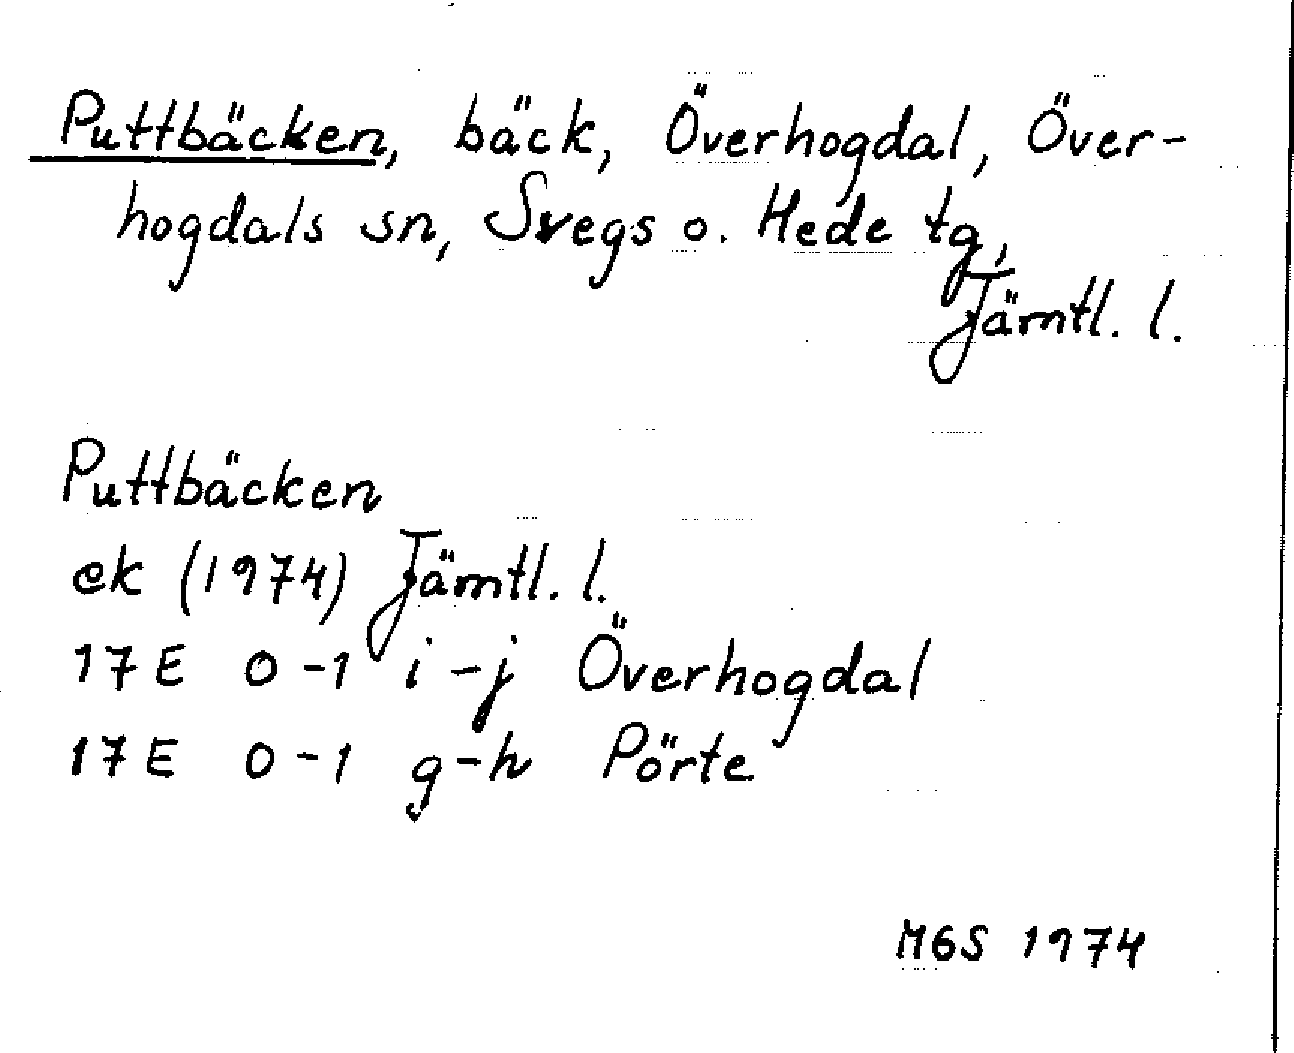 Puttbäcken, bäck, Överhogdal, Över-
hogdals sn, Svegs o. Hede tg,
Jämtl. l.
Puttbäcken
ek (1974) Jämtl. l.
17E 0-1 i-j Överhogdal
17E 0-1 g-h Pörte
MGS 1974